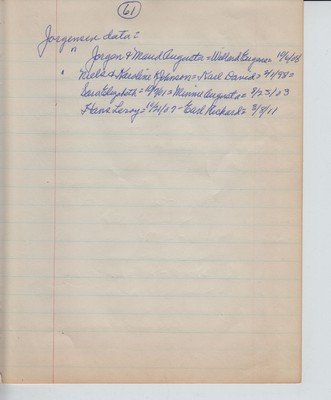 61
Jorgensen data =
" Jorgen & Maud Augusta = Willard Eugene = 11/6/08
" Niels & Karoline Johnson = Karl David =
Sara Elizabeth = Minnie Augusta = 8/23/03
Hans Leroy = 11/21/07 - Earl Richard = 3/9/11